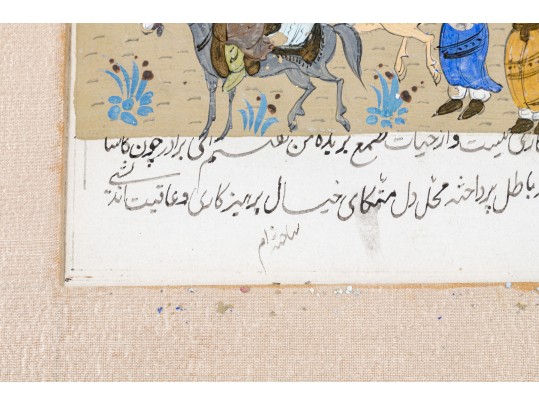 کاری نیست و از حیات طمع بریده من بقسم ای برادر چون
باطل پرداخته محل دل متکای خیال پرهیزکاری و عاقبت اندیشی